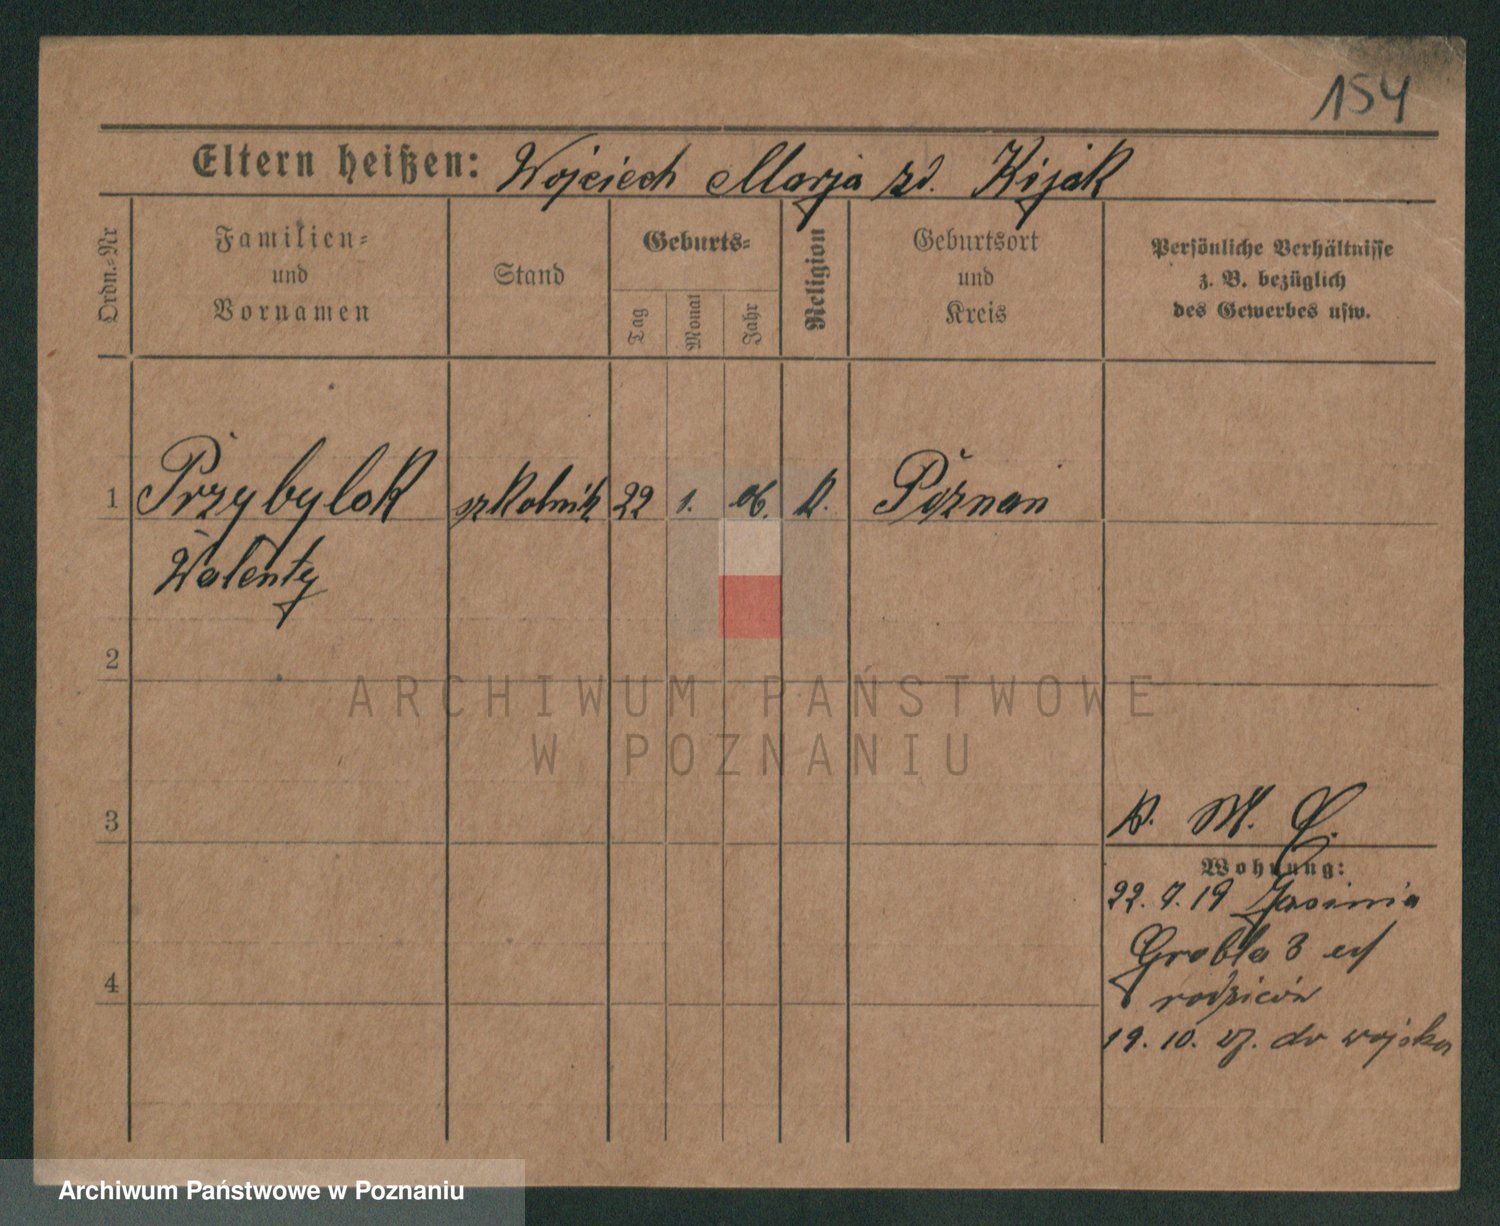 154
Eltern heißen: Wojciech Marja zd. Kijak
Ordn.-Nr
Familien-
und
Vornamen
Stand
Geburts-
Tag
Monat
Jahr
Religion
Geburtsort
und
Kreis
Persönliche Verhältnisse
z. B. bezüglich
des Gewerbes usw.
1 Przybylak szkolnik 22 1. 06. k. Poznan
Walenty
2
ARCHIWUM PAŃSTWOWE
W POZNANIU
3
M.
Wohnung:
22. 7. 19 Grobla 3
rodziców
4
19. 10. 27. do wojska
Archiwum Państwowe w Poznaniu